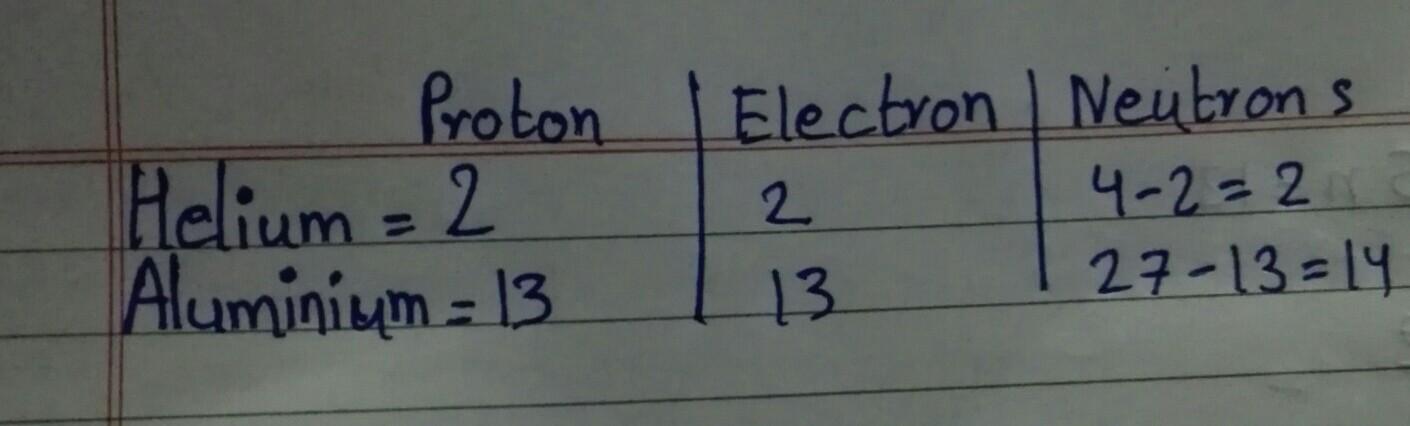 Proton | Electron | Neutrons
Helium = 2 | 2 | 4-2=2
Aluminium = 13 | 13 | 27-13=14